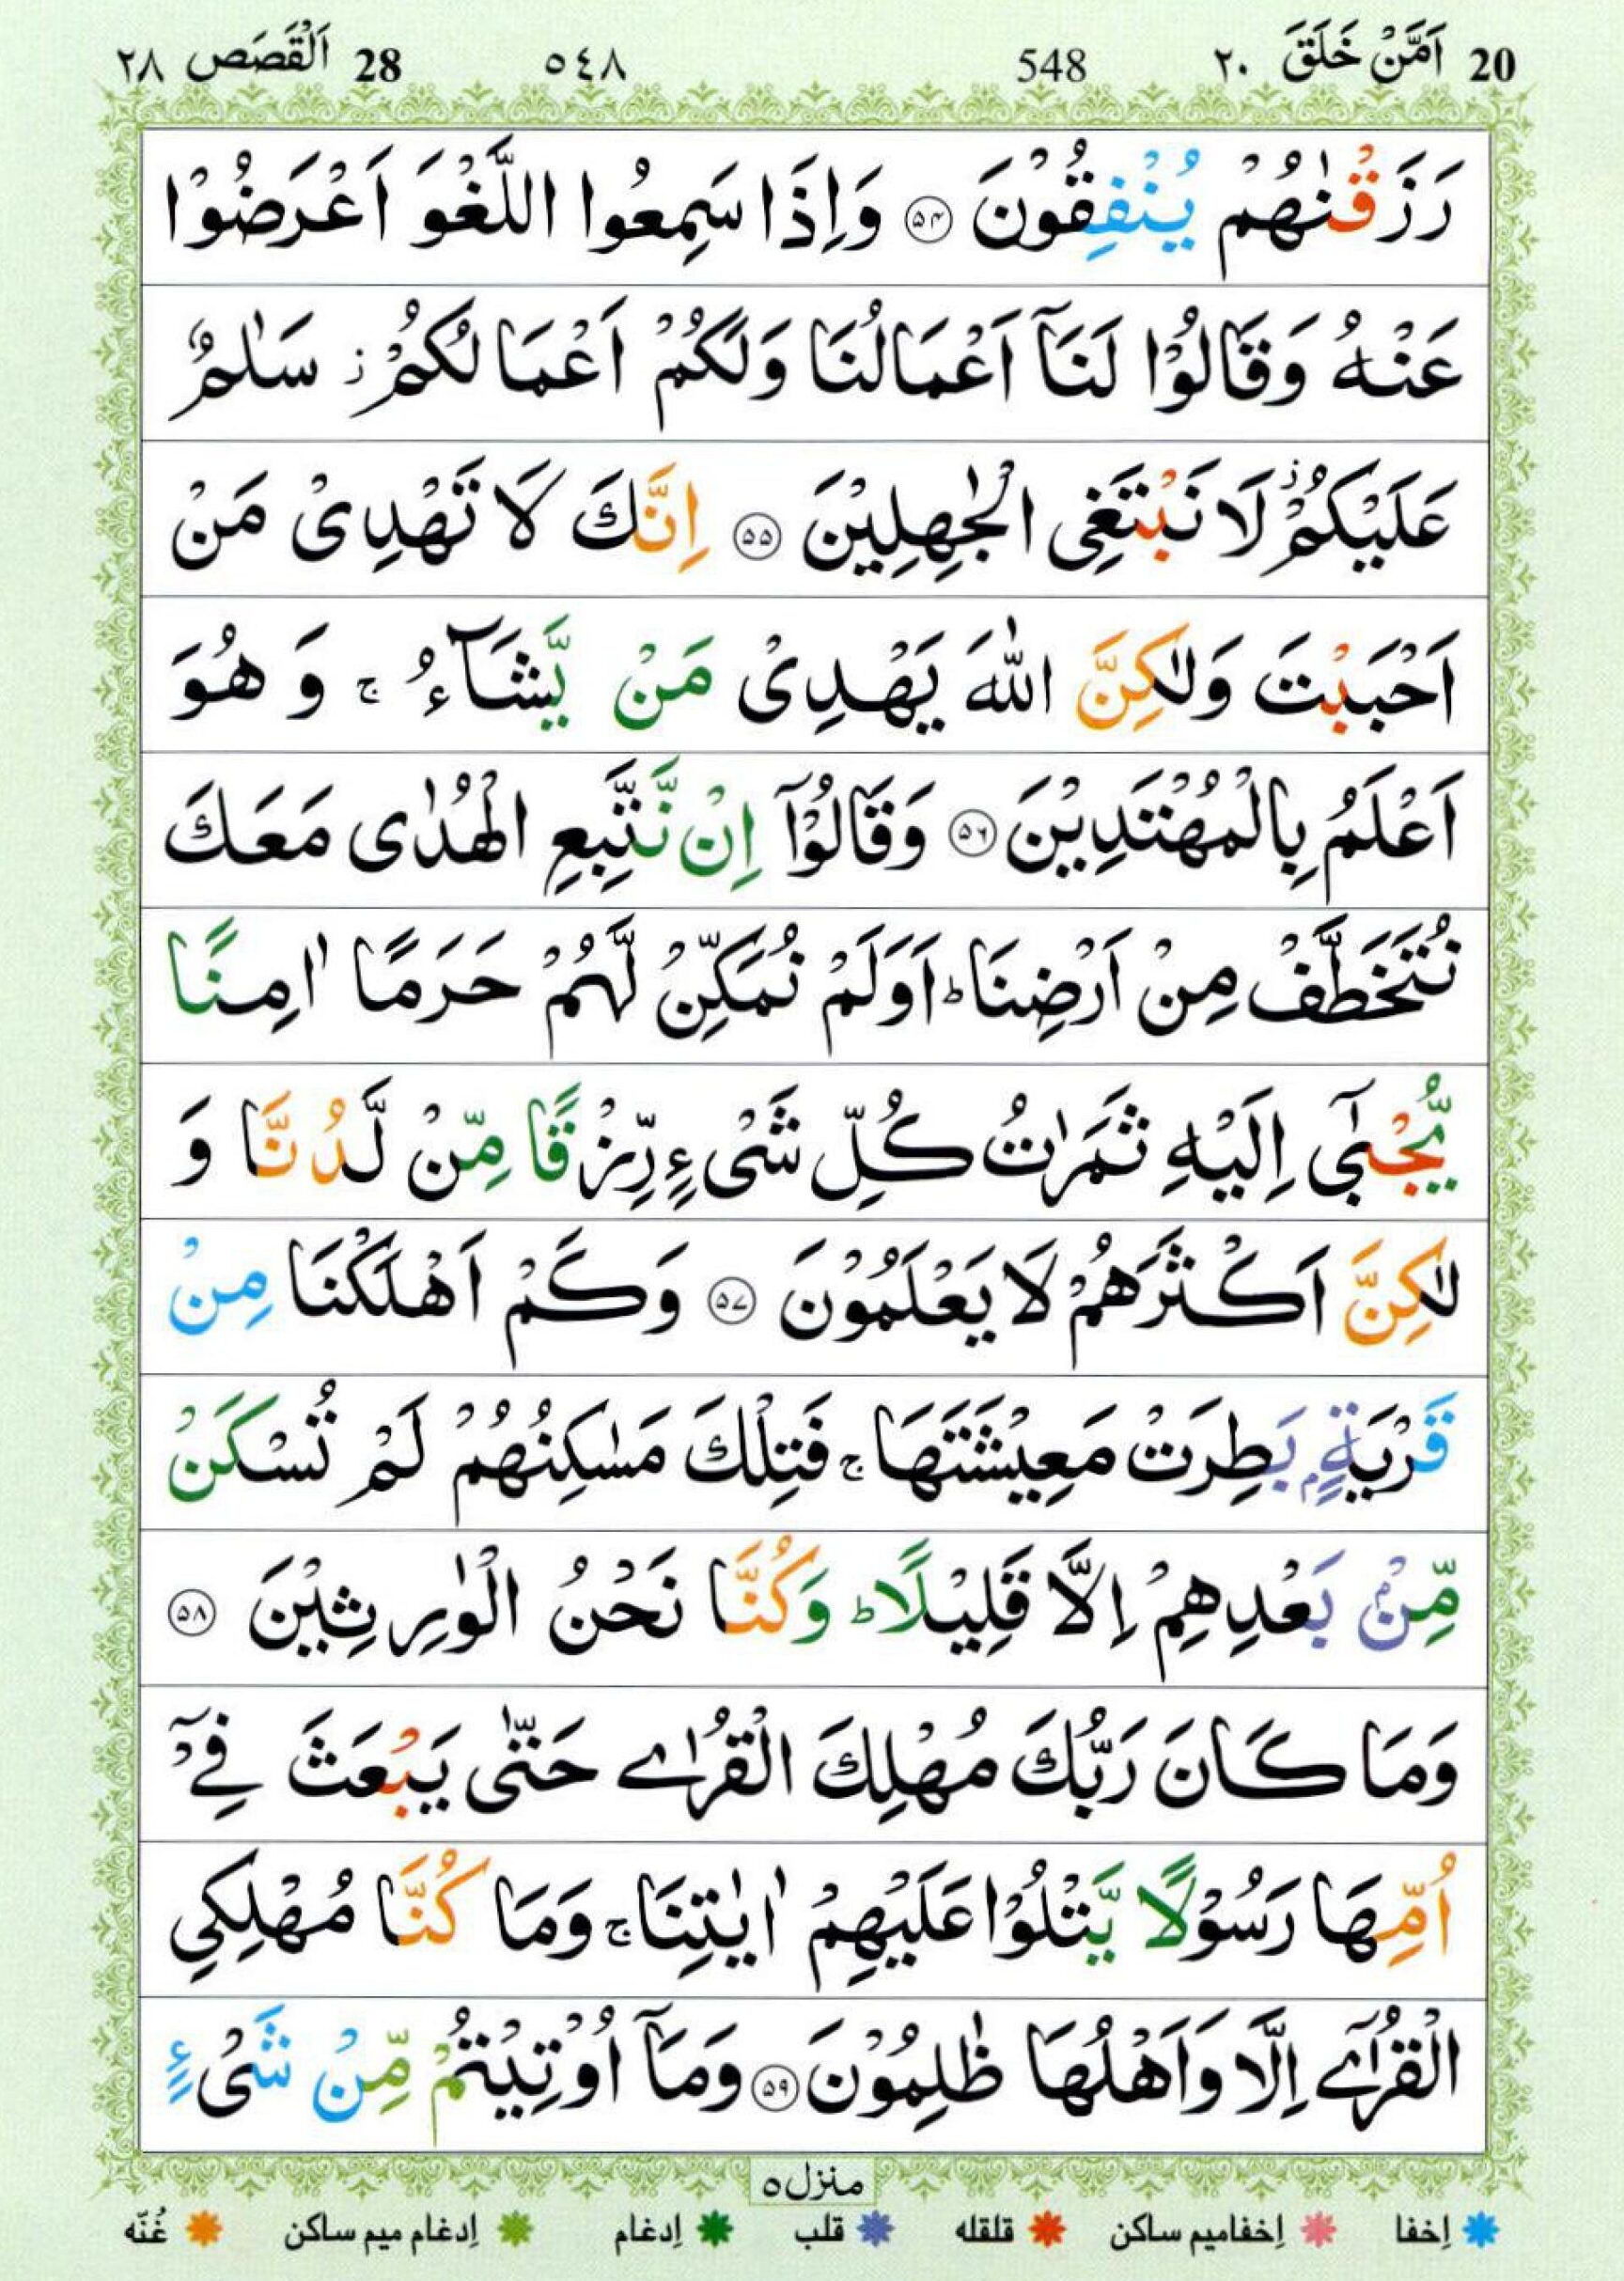 20 اَمَّنْ خَلَقَ ٢٠ 548 ٥٤٨ 28 اَلْقَصَص ٢٨
رَزَقْنٰهُمْ يُنْفِقُوْنَ ﴿۵۴﴾ وَاِذَا سَمِعُوا اللَّغْوَ اَعْرَضُوْا
عَنْهُ وَقَالُوْا لَنَاۤ اَعْمَالُنَا وَلَكُمْ اَعْمَالُكُمْ ز سَلٰمٌ
عَلَيْكُمْ ز لَا نَبْتَغِى الْجٰهِلِيْنَ ﴿۵۵﴾ اِنَّكَ لَا تَهْدِىْ مَنْ
اَحْبَبْتَ وَلٰكِنَّ اللّٰهَ يَهْدِىْ مَنْ يَّشَآءُ ۚ وَ هُوَ
اَعْلَمُ بِالْمُهْتَدِيْنَ ﴿۵۶﴾ وَقَالُوْۤا اِنْ نَّتَّبِعِ الْهُدٰى مَعَكَ
نُتَخَطَّفْ مِنْ اَرْضِنَا ؕ اَوَلَمْ نُمَكِّنْ لَّهُمْ حَرَمًا اٰمِنًا
يُّجْبٰۤى اِلَيْهِ ثَمَرٰتُ كُلِّ شَىْءٍ رِّزْقًا مِّنْ لَّدُنَّا وَ
لٰكِنَّ اَكْثَرَهُمْ لَا يَعْلَمُوْنَ ﴿۵۷﴾ وَكَمْ اَهْلَكْنَا مِنْ
قَرْيَةٍۭ بَطِرَتْ مَعِيْشَتَهَا ۚ فَتِلْكَ مَسٰكِنُهُمْ لَمْ تُسْكَنْ
مِّنْۢ بَعْدِهِمْ اِلَّا قَلِيْلًا ؕ وَكُنَّا نَحْنُ الْوٰرِثِيْنَ ﴿۵۸﴾
وَمَا كَانَ رَبُّكَ مُهْلِكَ الْقُرٰى حَتّٰى يَبْعَثَ فِىْۤ
اُمِّهَا رَسُوْلًا يَّتْلُوْا عَلَيْهِمْ اٰيٰتِنَا ۚ وَمَا كُنَّا مُهْلِكِى
الْقُرٰٓى اِلَّا وَاَهْلُهَا ظٰلِمُوْنَ ﴿۵۹﴾ وَمَاۤ اُوْتِيْتُمْ مِّنْ شَىْءٍ
منزل ۵
اِخفا اِخفامیم ساکن قلقله قلب اِدغام اِدغام میم ساکن غُنّه